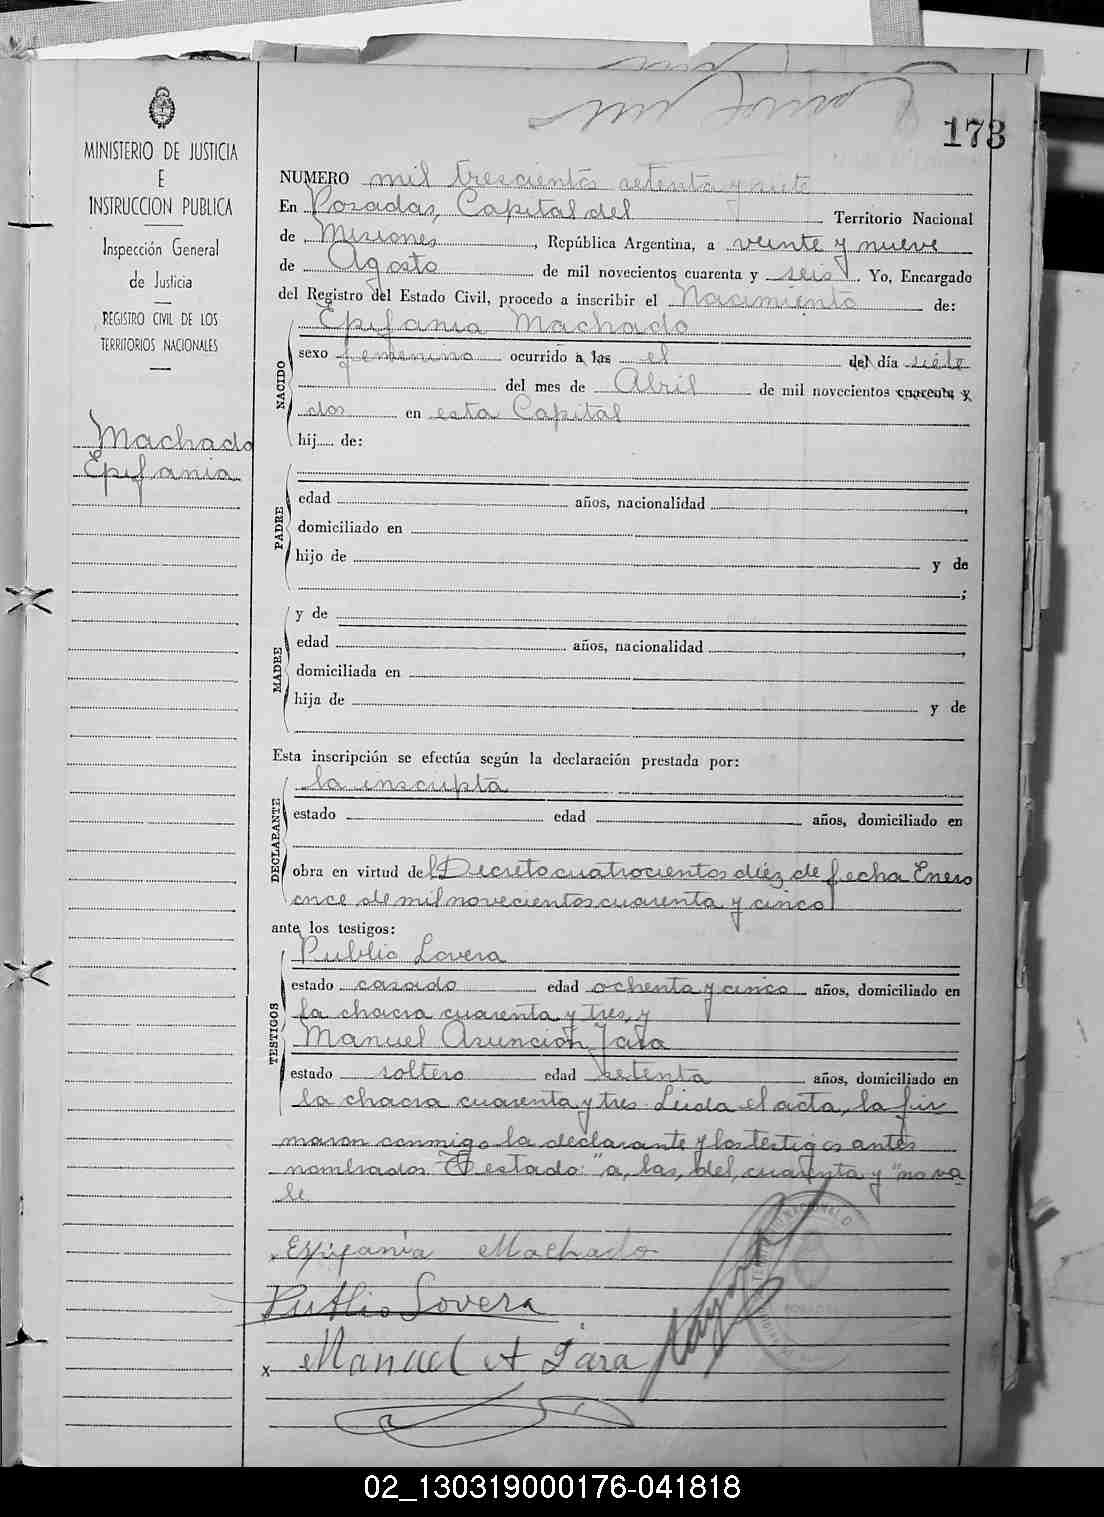 173
MINISTERIO DE JUSTICIA
E
INSTRUCCION PUBLICA
Inspección General
de Justicia
REGISTRO CIVIL DE LOS
TERRITORIOS NACIONALES
Machado
Epifania
NUMERO mil trescientos setenta y siete
En Posadas, Capital del Territorio Nacional
de Misiones, República Argentina, a veinte y nueve
de Agosto de mil novecientos cuarenta y seis. Yo, Encargado
del Registro del Estado Civil, procedo a inscribir el Nacimiento de:
Epifania Machado
NACIDO
sexo femenino ocurrido a las el del día siete
del mes de Abril de mil novecientos cuarenta y
dos en esta Capital
hij..... de:
PADRE
edad años, nacionalidad ,
domiciliado en
hijo de y de
;
MADRE
y de
edad años, nacionalidad ,
domiciliada en
hija de y de
Esta inscripción se efectúa según la declaración prestada por:
DECLARANTE
la inscripta
estado edad años, domiciliado en
obra en virtud del Decreto cuatrocientos diéz de fecha Enero
once de mil novecientos cuarenta y cinco
ante los testigos:
TESTIGOS
Publio Lovera
estado casado edad ochenta y cinco años, domiciliado en
la chacra cuarenta y tres, y
Manuel Asuncion Jara
estado soltero edad setenta años, domiciliado en
la chacra cuarenta y tres. Leida el acta, la fir
maron conmigo la declarante y los testigos antes
nombrados. Testado: "a, las, del, cuarenta y "no va-
le
Epifania Machado
Publio Lovera
x Manuel A Jara
02_130319000176-041818